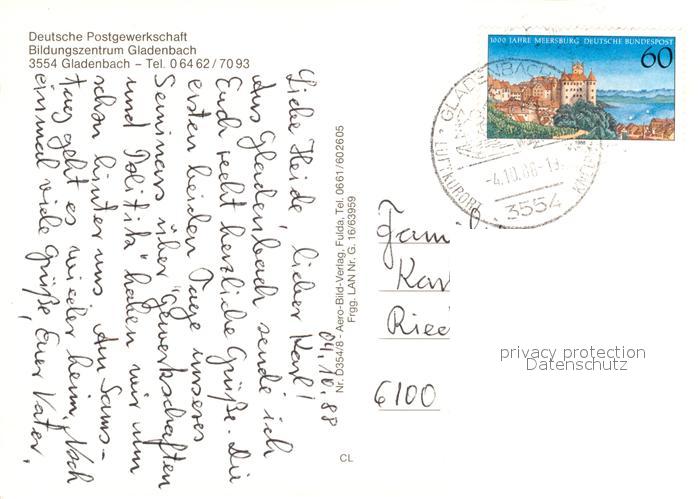 Deutsche Postgewerkschaft
Bildungszentrum Gladenbach
3554 Gladenbach – Tel. 0 64 62 / 70 93
1000 JAHRE MEERSBURG DEUTSCHE BUNDESPOST
60
1988
GLADENBACH
LUFTKURORT
-4.10.88-19
3554
04.10.88
Liebe Heide, lieber Karl!
Aus Gladenbach sende ich
Euch recht herzliche Grüße. Die
ersten beiden Tage unseres
Seminars über "Gewerkschaften
und Politik" haben wir nun
schon hinter uns. Am Sams-
tag geht es wieder heim. Noch
einmal viele Grüße, Euer Vater.
Nr. D354/8 - Aero-Bild-Verlag, Fulda, Tel. 0661/602605
Frgg. LAN Nr. G. 16/63959
CL
Fam
Kar
Ried
6100
privacy protection
Datenschutz